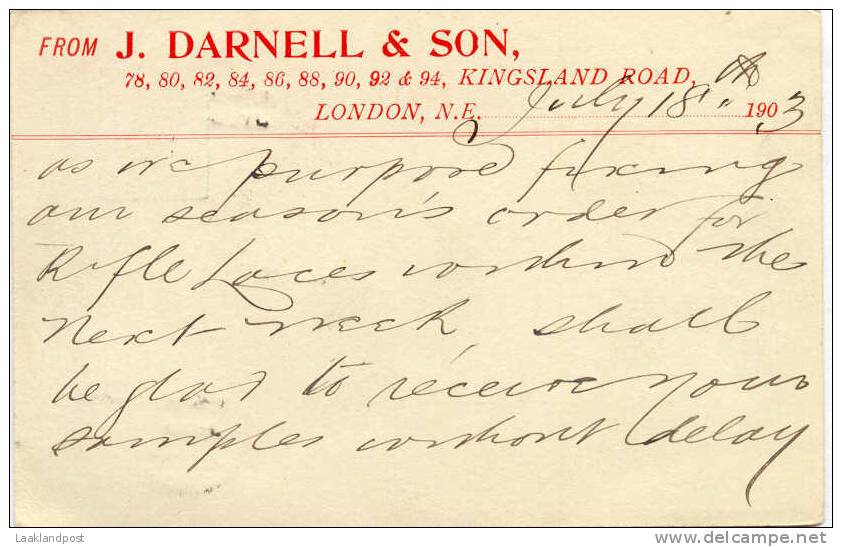 FROM J. DARNELL & SON,
78, 80, 82, 84, 86, 88, 90, 92 & 94, KINGSLAND ROAD,
LONDON, N.E. July 18th 1903
as we purpose fixing
our season's order for
Rifle Laces within the
next week, shall
be glad to receive your
samples without delay
Laaklandpost
www.delcampe.net